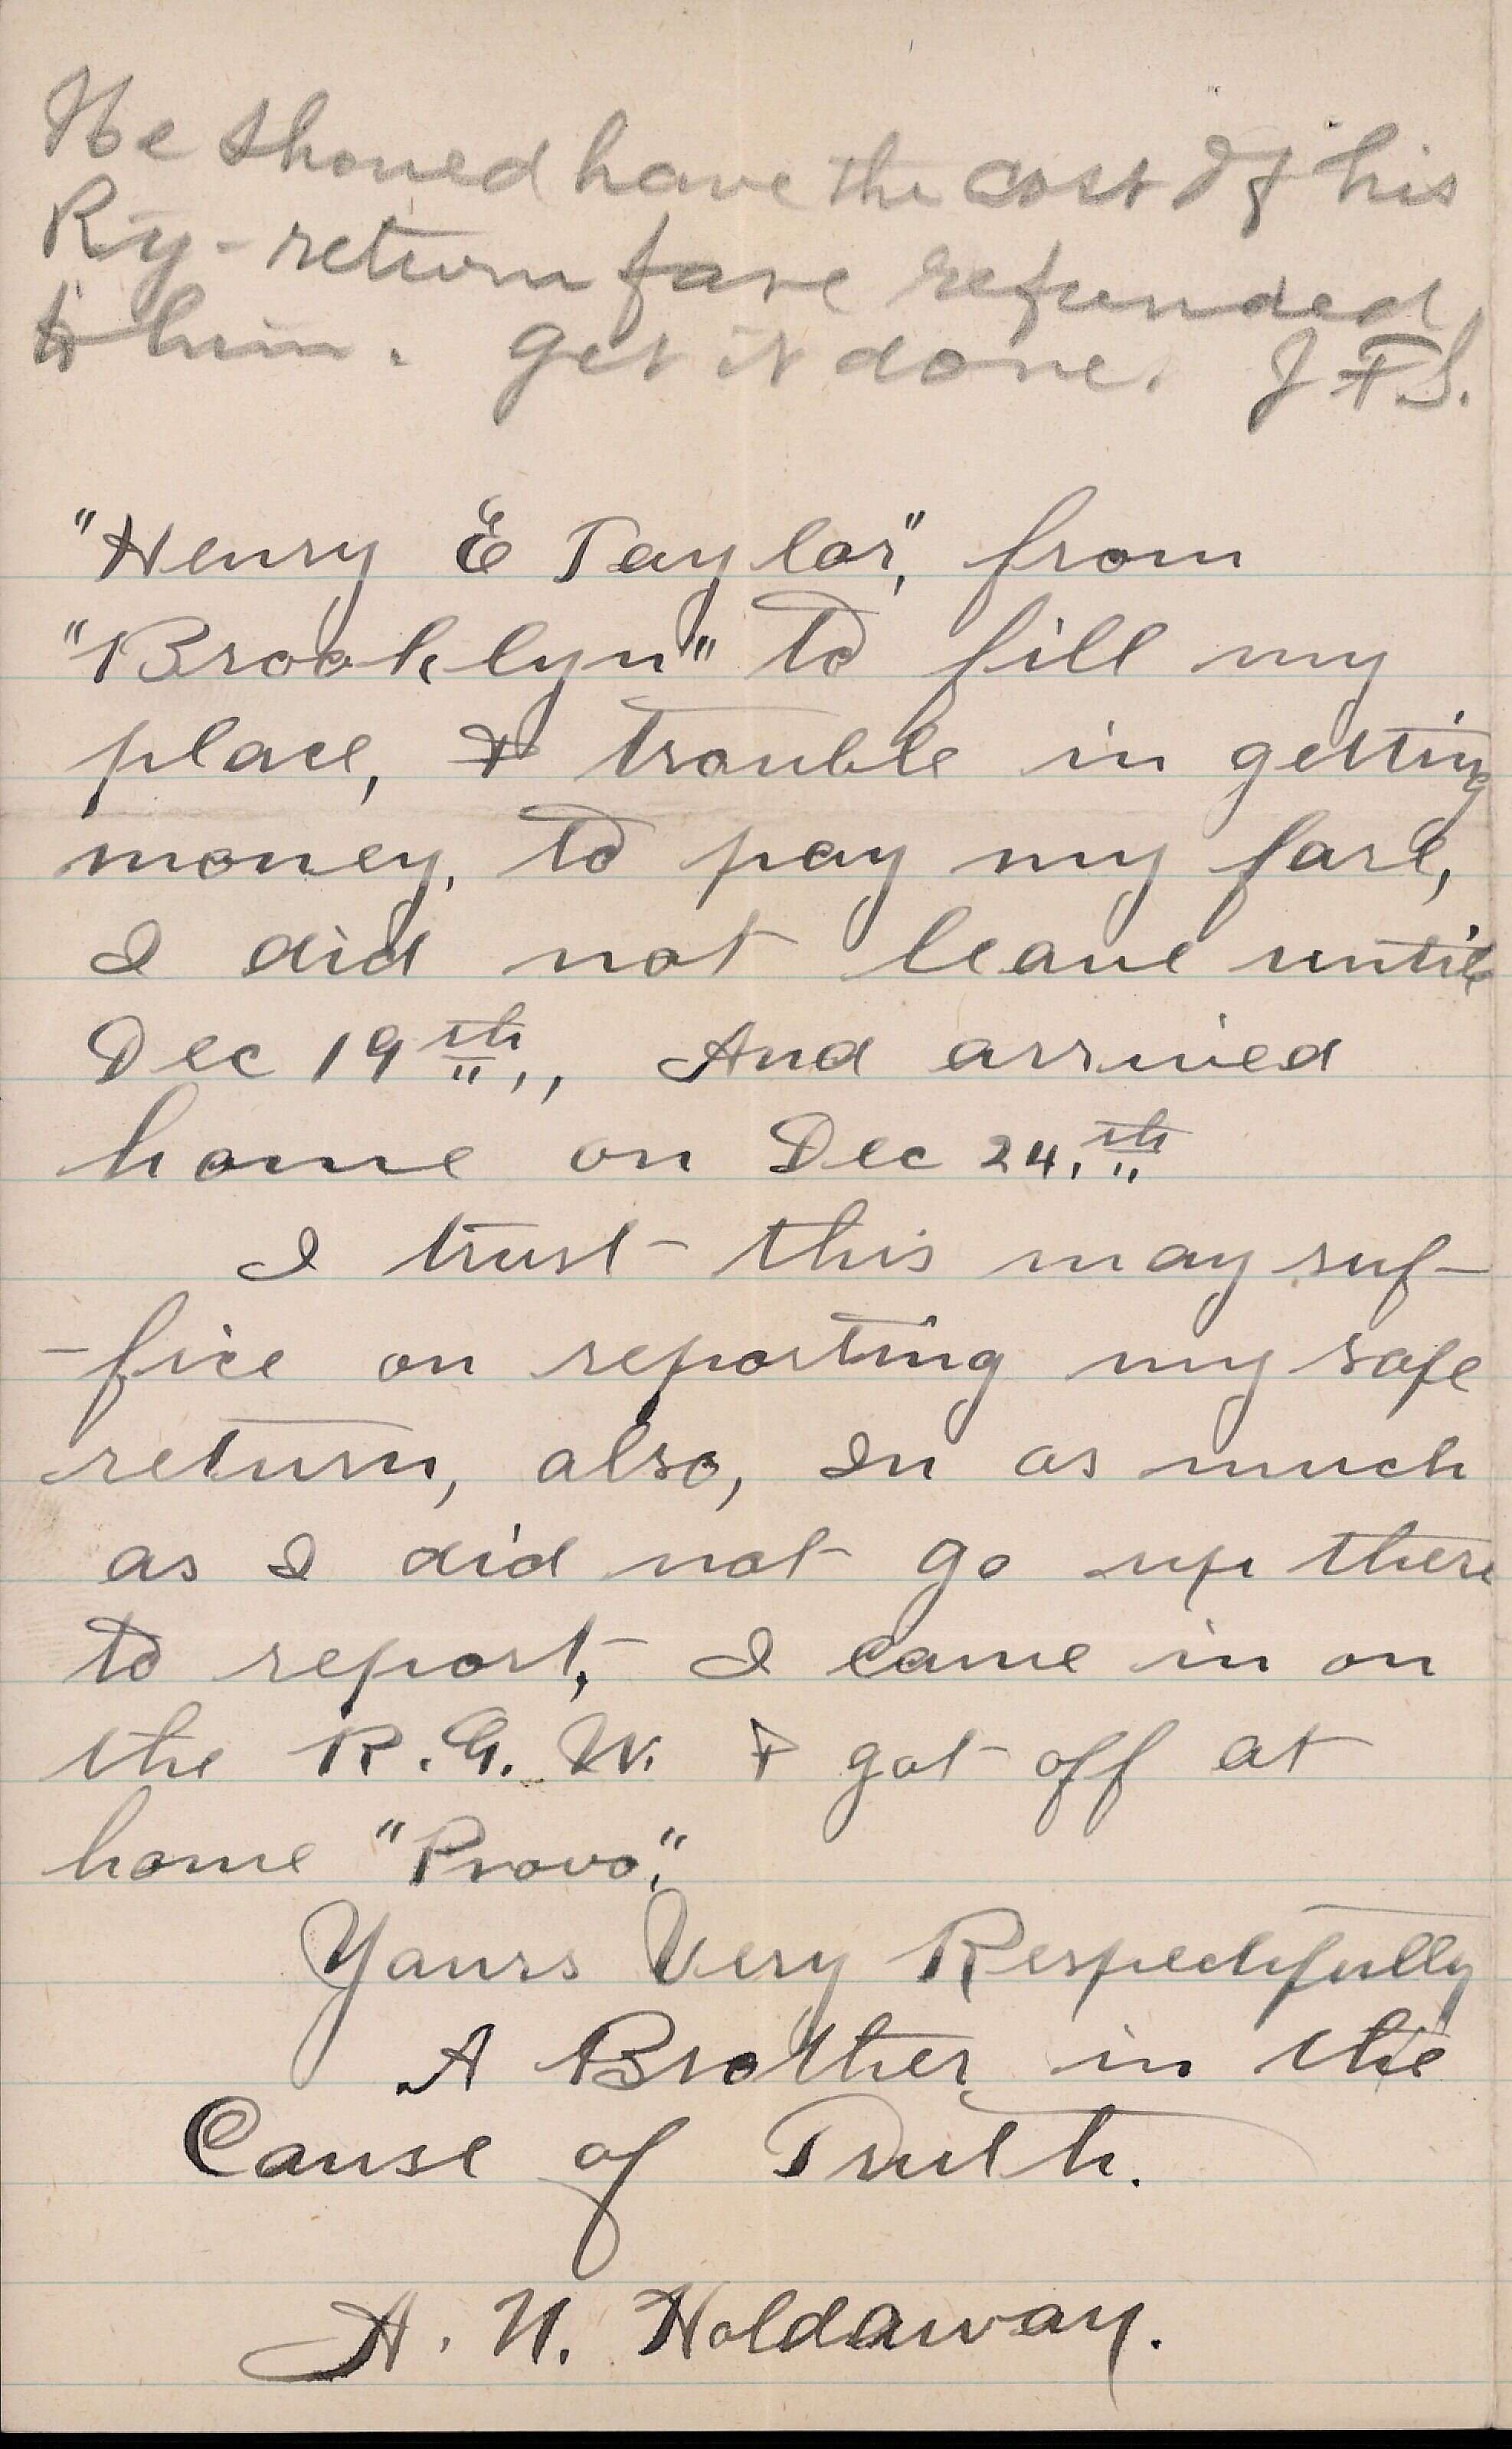 He should have the cost of his
Ry- return fare refunded
to him. get it done. J F S.
"Henry E Taylor", from
"Brooklyn" to fill my
place, & trouble in getting
money, to pay my fare,
I did not leave until
Dec 19th,, And arrived
home on Dec 24.th
I trust this may suf-
-fice on reporting my safe
return, also, In as much
as I did not go up there
to report, I came in on
the R. G. W. & got off at
home "Provo".
Yours Very Respectfully
A Brother in the
Cause of Truth.
A. N. Holdaway.